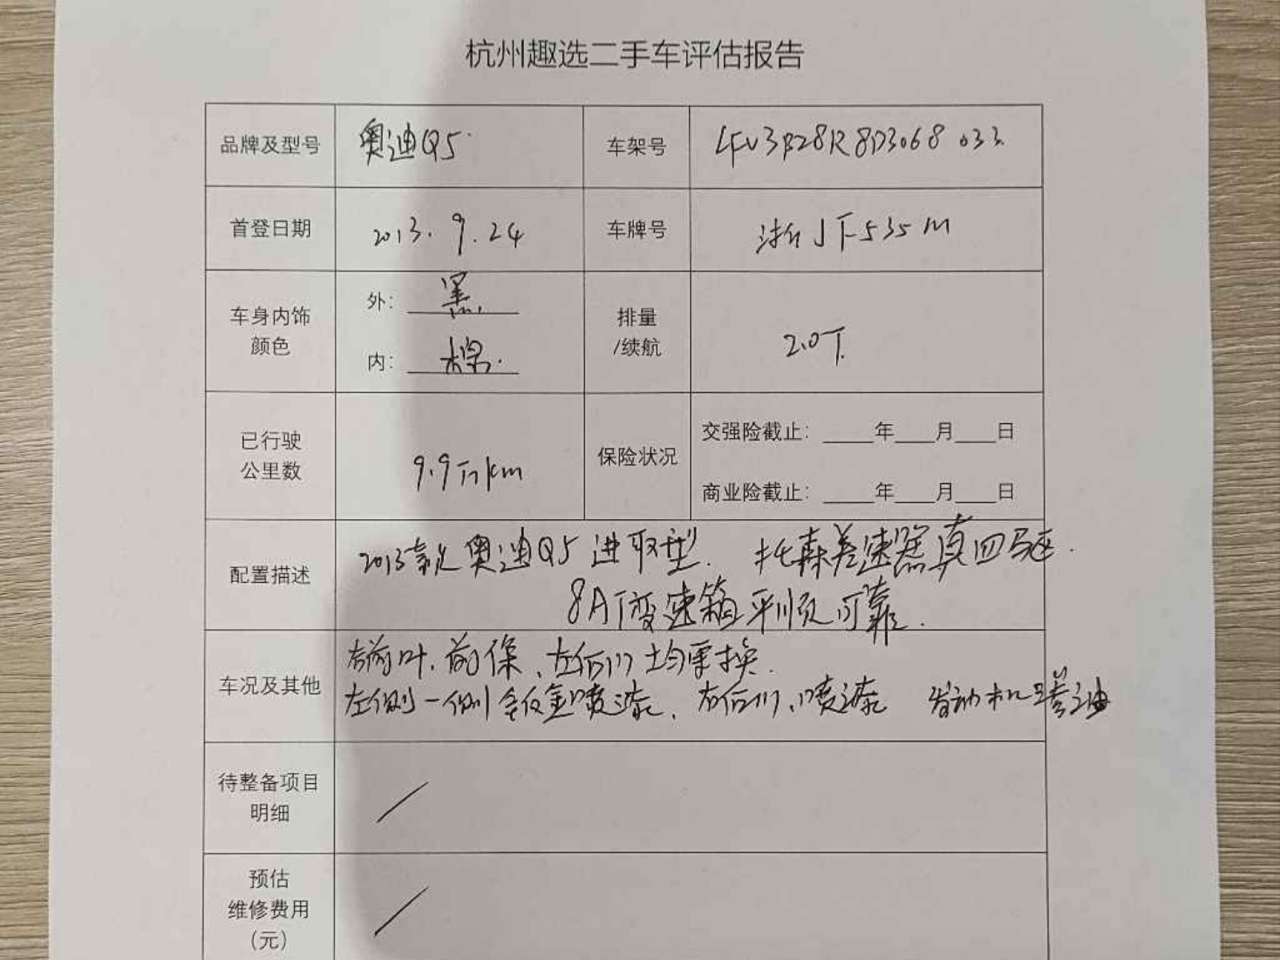 杭州趣选二手车评估报告
品牌及型号 奥迪Q5 车架号 LFV3B28R8D3068033
首登日期 2013.9.24 车牌号 浙JF535M
车身内饰颜色 外: 黑 内: 棕 排量/续航 2.0T
已行驶公里数 9.9万km 保险状况 交强险截止: ____年___月___日
商业险截止: ____年___月___日
配置描述 2013款奥迪Q5进取型. 托森差速器真四驱.
8AT变速箱平顺可靠.
车况及其他 右前叶、前保、左后门均更换.
左侧一侧全钣金喷漆、右后门、喷漆 发动机渗油
待整备项目明细 /
预估维修费用(元) /